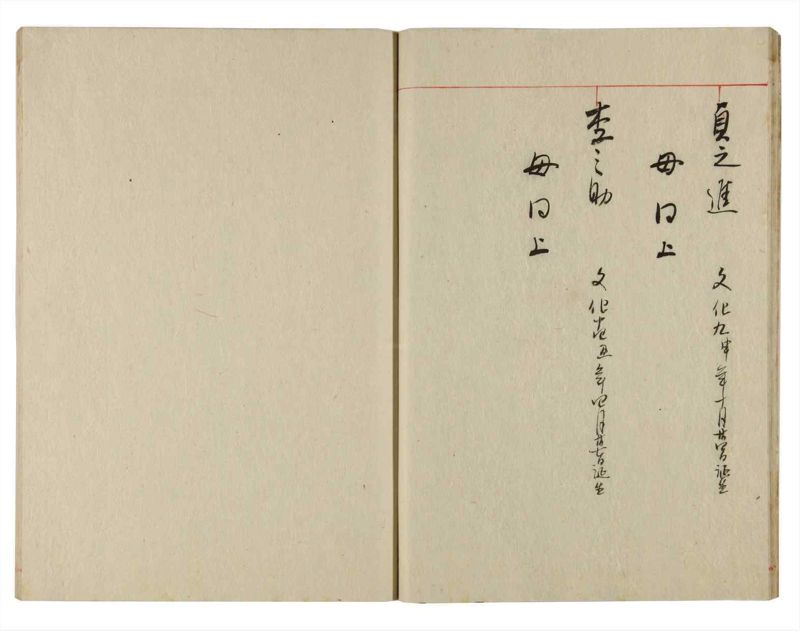 貞之進　文化九申年十月廿四日誕生
母同上
杢之助　文化 丑年四月廿 日誕生
母同上